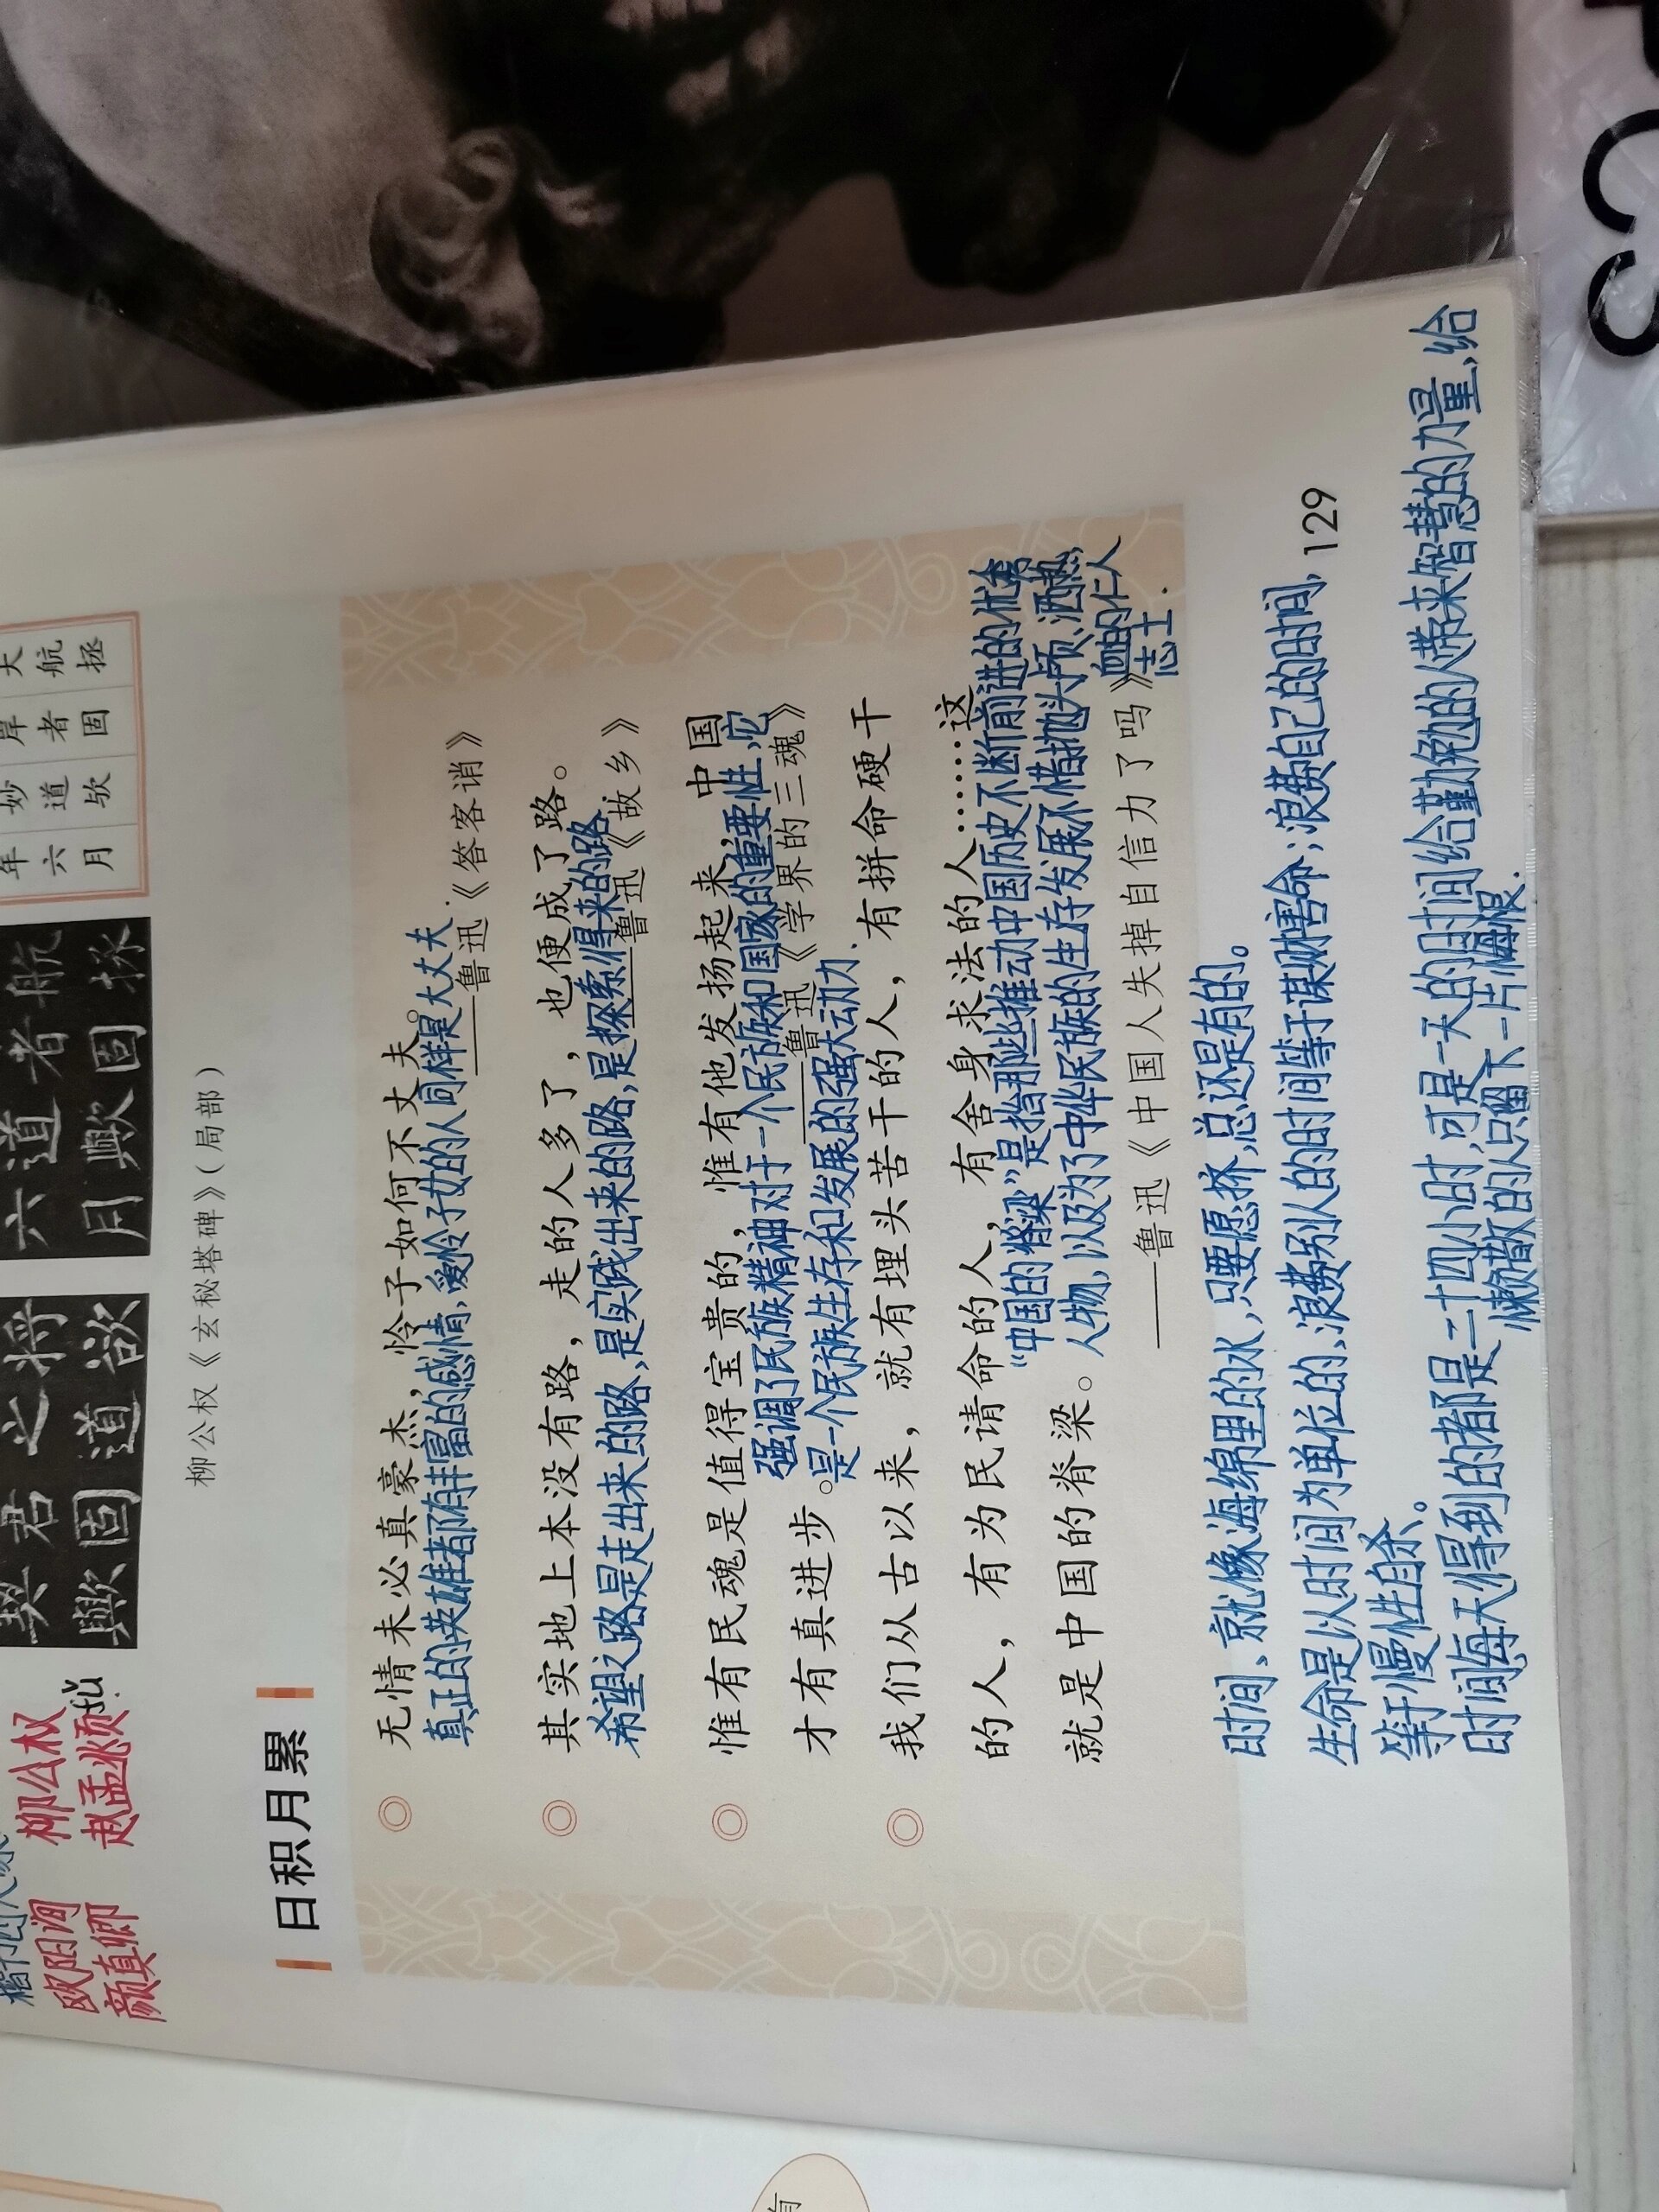 大
航
拯
岸
者
固
妙
道
欤
年
六
月
六道者航
月歟固拯
契君之将
歟固道欲
柳公权《玄秘塔碑》（局部）
欧阳询 柳公权
颜真卿 赵孟頫
日积月累
无情未必真豪杰，怜子如何不丈夫。
真正的英雄都有丰富的感情，爱怜子女的人同样是大丈夫.
——鲁迅《答客诮》
其实地上本没有路，走的人多了，也便成了路。
希望之路是走出来的路，是实践出来的路，是探索得来的路
——鲁迅《故乡》
惟有民魂是值得宝贵的，惟有他发扬起来，中国
强调了民族精神对于一个民族和国家的重要性，它
才有真进步。
——鲁迅《学界的三魂》
是一个民族生存和发展的强大动力.
我们从古以来，就有埋头苦干的人，有拼命硬干
的人，有为民请命的人，有舍身求法的人……这
“中国的脊梁”是指那些推动中国历史不断前进的优秀
就是中国的脊梁。
人物，以及为了中华民族的生存发展不惜抛头颅、洒热
血的仁人
志士.
——鲁迅《中国人失掉自信力了吗》
129
时间、就像海绵里的水，只要愿挤，总还是有的。
生命是以时间为单位的，浪费别人的时间等于谋财害命；浪费自己的时间，
等于慢性自杀。
时间每天得到的都是二十四小时，可是一天的时间给勤勉的人带来智慧的力量，给
懒散的人只留下一片悔恨.